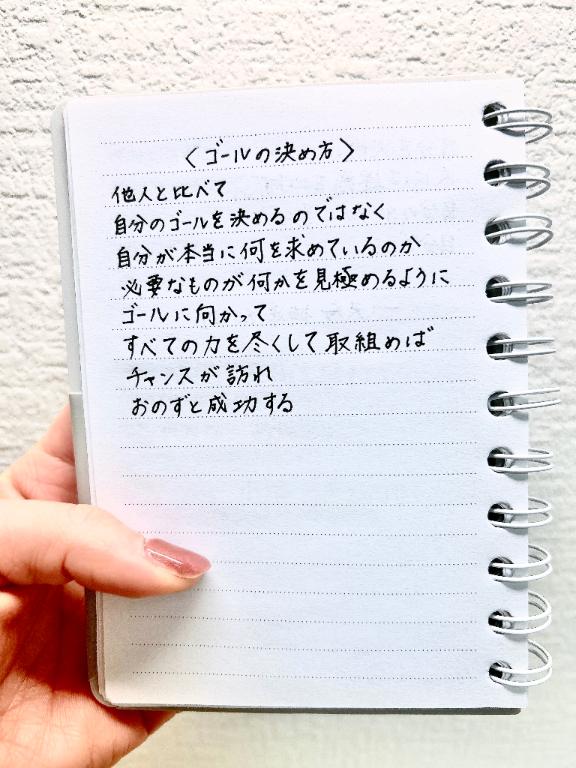 〈ゴールの決め方〉
他人と比べて
自分のゴールを決めるのではなく
自分が本当に何を求めているのか
必要なものが何かを見極めるように
ゴールに向かって
すべての力を尽くして取組めば
チャンスが訪れ
おのずと成功する